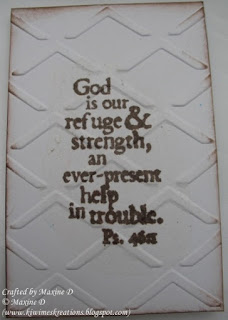 God
is our
refuge &
strength,
an
ever-present
help
in trouble.
Ps. 46:1
Crafted by Maxine D
© Maxine D
(www.kiwimeskreations.blogspot.com)